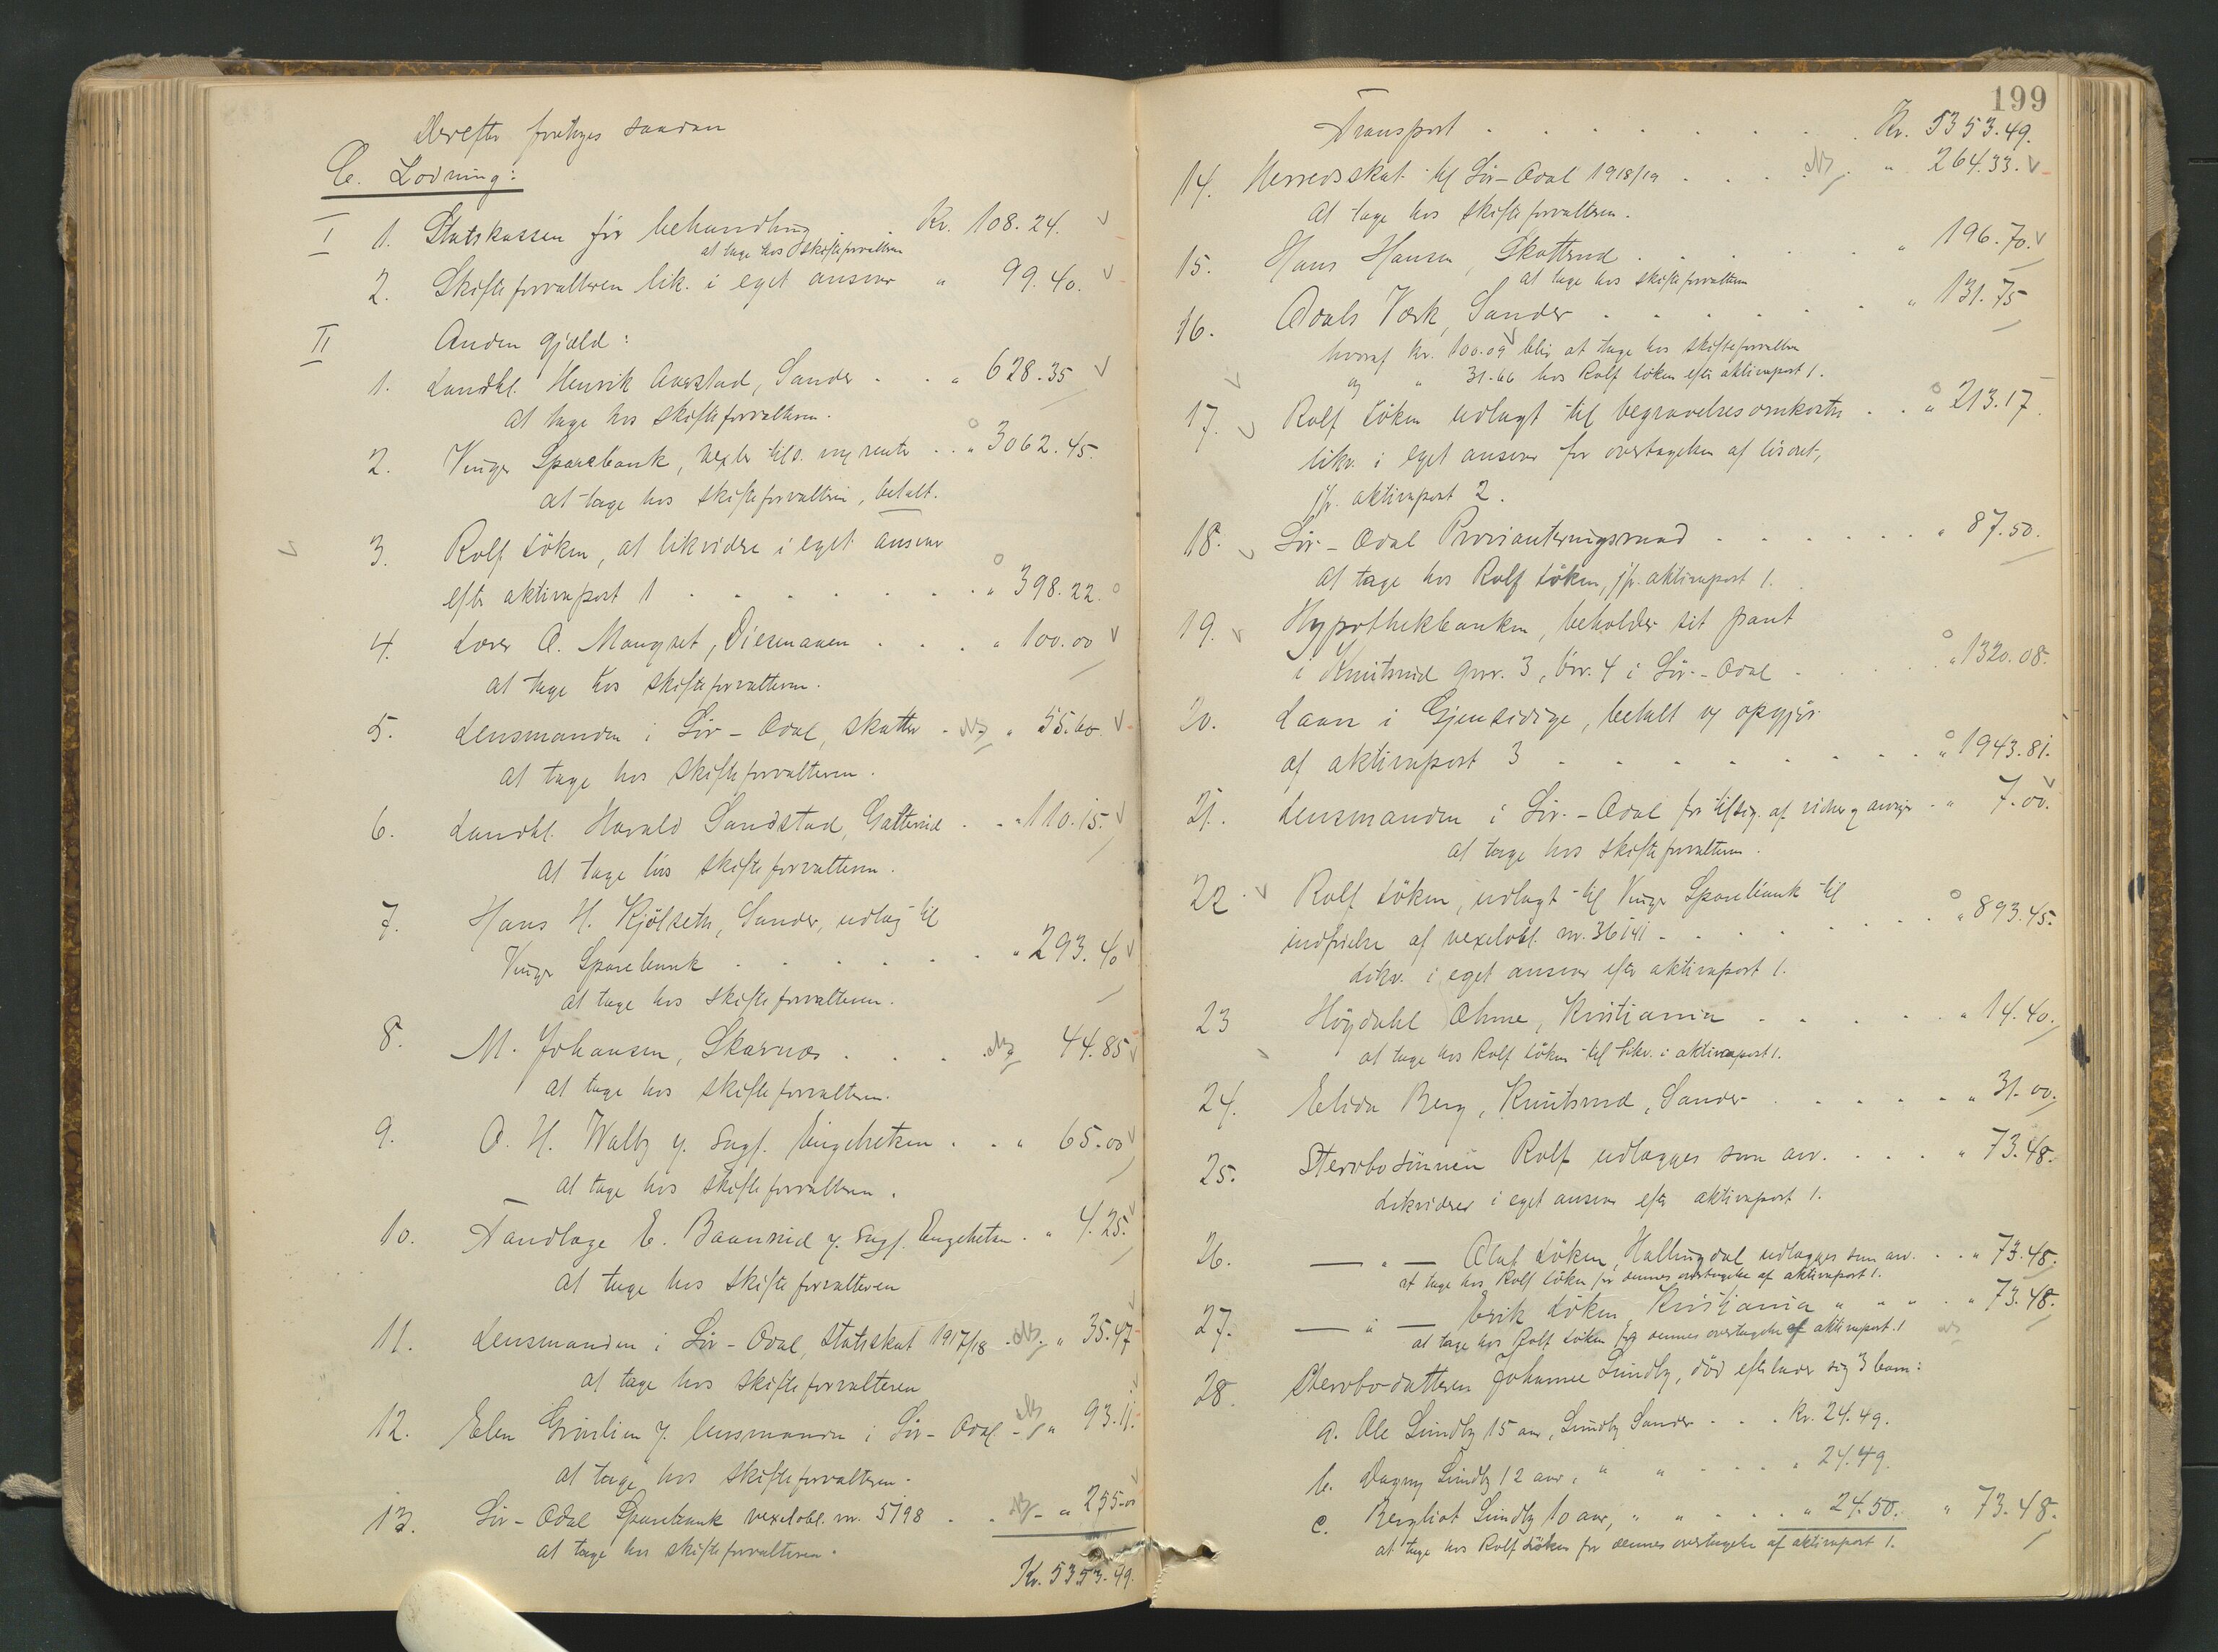 Derefter foretoges saadan
C. Lodning:
I 1. Statskassen for behandling . . Kr. 108.24.
at tage hos skifteforvalteren
2. Skifteforvalteren lik. i eget ansvar " 99.40.
II Anden gjæld:
1. Landhl. Henrik Aarstad, Sander . . " 628.35
at tage hos skifteforvalteren.
2. Vinger Sparebank, vexler m. rente . . " 3062.45.
at tage hos skifteforvalteren, betalt.
3. Rolf Löken, at likvidere i eget ansvar
efter aktivapost 1 . . . . . . . " 398.22.
4. Lærer O. Mangset, Disenaaen . . . " 100.00
at tage hos skifteforvalteren.
5. Lensmanden i Sör-Odal, skatter . " 55.60
at tage hos skifteforvalteren.
6. Landhl. Harald Sandstad, Galterud . . " 110.15.
at tage hos skifteforvalteren.
7. Hans H. Kjölseth, Sander, udlæg til
Vinger Sparebank . . . . . . . " 293.40
at tage hos skifteforvalteren.
8. M. Johansen, Skarnæs . . . . " 44.85
at tage hos skifteforvalteren.
9. O. H. Walby v. sagf. Engebretsen . . " 65.00
at tage hos skifteforvalteren.
10. Tandlæge E. Baanrud v. sagf. Engebretsen . " 4.25.
at tage hos skifteforvalteren
11. Lensmanden i Sör-Odal, statsskat 1917/18 . " 35.47
at tage hos skifteforvalteren
12. Elen v. lensmanden i Sör-Odal - " 93.11.
at tage hos skifteforvalteren.
13. Sör-Odal Sparebank vexelobl. nr. 5198 . . - " 255.00
at tage hos skifteforvalteren.
Kr. 5353.49.
199
Transport . . . . . . . . Kr. 5353.49.
14. Herredsskat til Sör-Odal 1918/19 . . . . " 264.33.
at tage hos skifteforvalteren.
15. Hans Hansen, Skotterud . . . . . " 196.70.
at tage hos skifteforvalteren
16. Odals Værk, Sander . . . . . . " 131.75
hvoraf kr. 100.09 blir at tage hos skifteforvalteren
og " 31.66 hos Rolf Löken efter aktivapost 1.
17. Rolf Löken udlagt til begravelsesomkostn. . . " 213.17.
likv. i eget ansvar for overtagelsen af lösöret,
jfr. aktivapost 2.
18. Sör-Odal Provianteringsraad . . . . . . " 87.50.
at tage hos Rolf Löken, jfr. aktivapost 1.
19. Hypothekbanken, beholder sit pant
i Knutsrud gnr. 3, bnr. 4 i Sör-Odal . . . " 1320.08.
20. Laan i Gjensidige, betalt og opgjör
af aktivapost 3 . . . . . . . . " 1943.81.
21. Lensmanden i Sör-Odal for tilsig. af . " 7.00.
at tage hos skifteforvalteren.
22. Rolf Löken, udlagt til Vinger Sparebank til
indfrielse af vexelobl. nr. 36141 . . . . . . " 893.45.
Likv. i eget ansvar efter aktivapost 1.
23 Höydahl Ohme, Kristiania . . . . . " 14.40.
at tage hos Rolf Löken til likv. i aktivapost 1.
24. Elida Berg, Knutsrud, Sander . . . . . " 31.00.
25. Stervbosönnen Rolf udlægges som arv. . . . " 73.48.
Likviderer i eget ansvar efter aktivapost 1.
26. — " — Olaf Löken, Hallingdal udlægges som arv. . . " 73.48.
at tage hos Rolf Löken for dennes overtagelse af aktivapost 1.
27. — " — Erik Löken, Kristiania " " " . " 73.48.
at tage hos Rolf Löken for dennes overtagelse af aktivapost 1
28. Stervbodatteren Johanne Lundby, död efterlader sig 3 barn:
a. Ole Lundby 15 aar, Lundby Sander . . . Kr. 24.49.
b. Dagny Lundby 12 aar, " " . . . . " 24.49.
c. Bergliot Lundby 10 aar, " " . . . . " 24.50. " 73.48.
at tage hos Rolf Löken for dennes overtagelse af aktivapost 1.